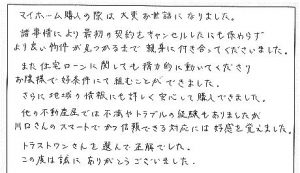 マイホーム購入の際は大変お世話になりました。
諸事情により最初の契約をキャンセルしたにも係わらず
より良い物件が見つかるまで親身に付き合ってくださいました。
また住宅ローンに関しても精力的に動いてくださり
お陰様で好条件にて組むことができました。
さらに地域の情報にも詳しく安心して購入できました。
他の不動産屋では不満やトラブルの経験もありましたが
川口さんのスマートでかつ信頼できる対応には好感を覚えました。
トラストワンさんを選んで正解でした。
この度は誠にありがとうございました。